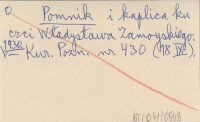 o Pomnik i kaplica ku
czci Władysława Zamoyskiego.
1930 Kur. Pozn. nr 430 (18 IX).